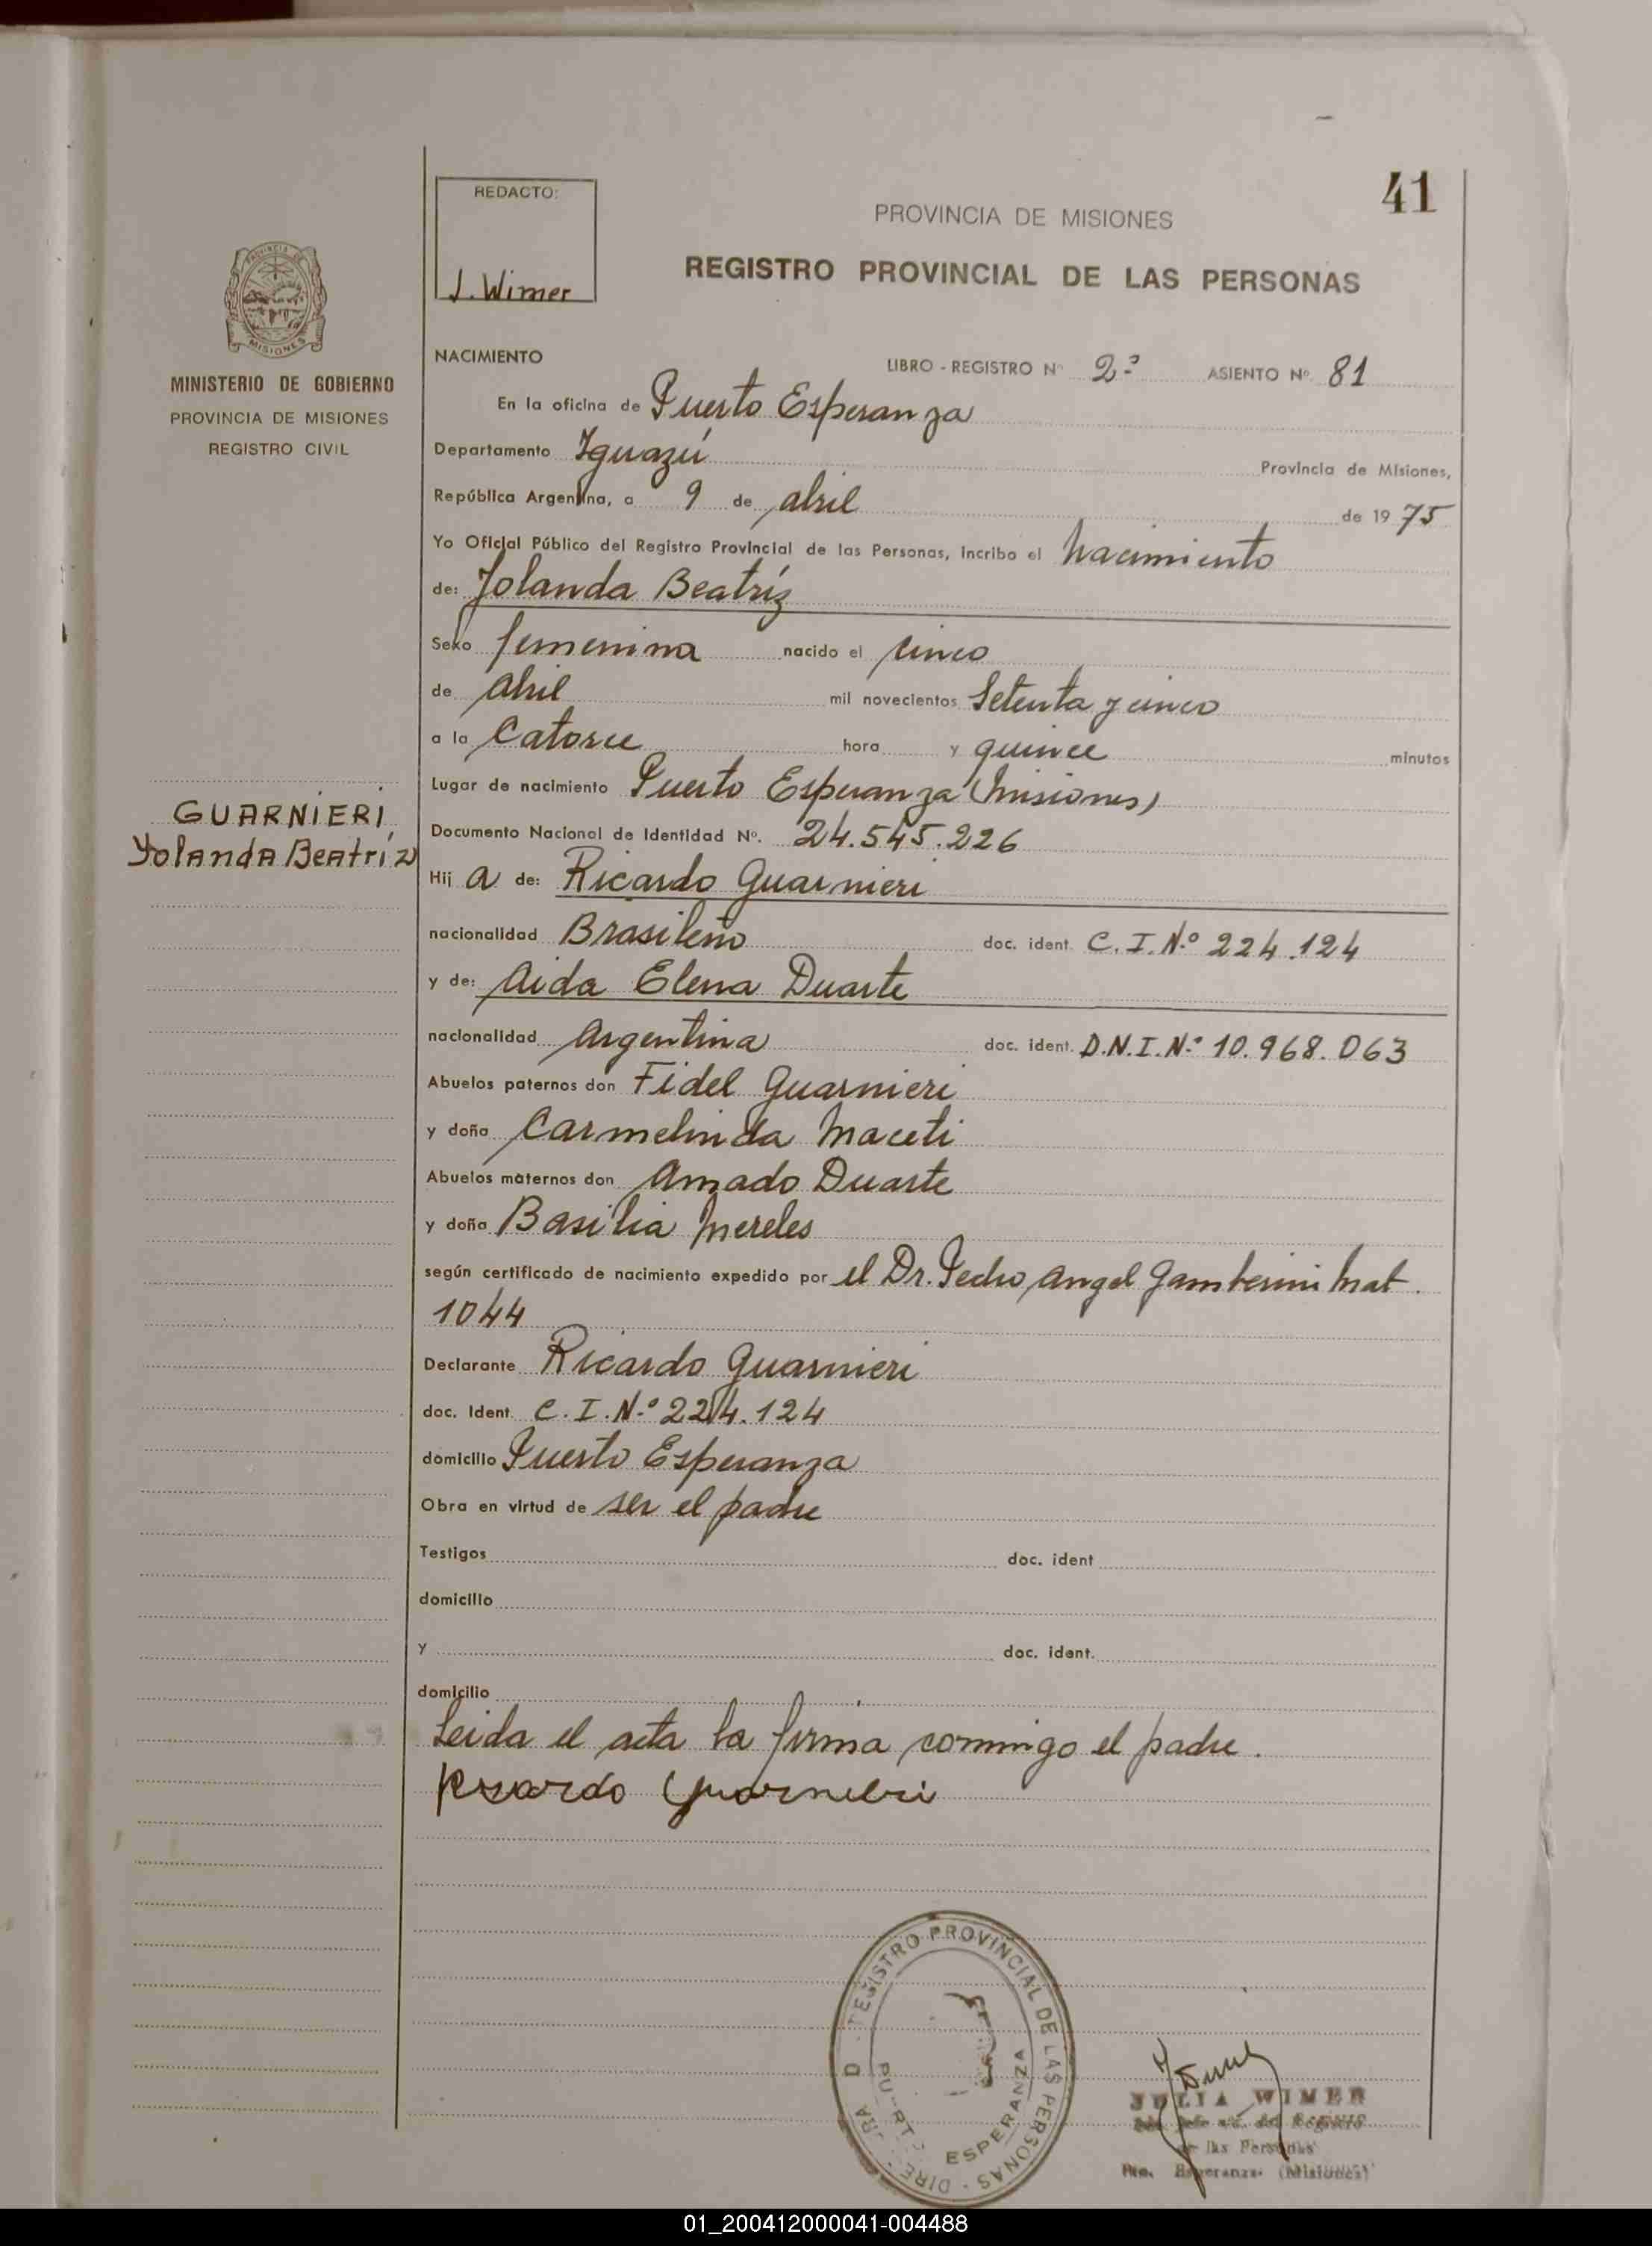 41
REDACTO:
J. Wimer
PROVINCIA DE MISIONES
REGISTRO PROVINCIAL DE LAS PERSONAS
PROVINCIA DE
MISIONES
MINISTERIO DE GOBIERNO
PROVINCIA DE MISIONES
REGISTRO CIVIL
GUARNIERI,
Yolanda Beatríz
NACIMIENTO LIBRO - REGISTRO Nº 2º ASIENTO Nº 81
En la oficina de Puerto Esperanza
Departamento Iguazú Provincia de Misiones,
República Argentina, a 9 de abril de 1975
Yo Oficial Público del Registro Provincial de las Personas, incribo el Nacimiento
de: Yolanda Beatríz
Sexo femenina nacido el cinco
de abril mil novecientos Setenta y cinco
a la Catorce hora y quince minutos
Lugar de nacimiento Puerto Esperanza (Misiones)
Documento Nacional de Identidad Nº. 24.545.226
Hij a de: Ricardo Guarnieri
nacionalidad Brasileño doc. ident. C.I.Nº 224.124
y de: Aida Elena Duarte
nacionalidad Argentina doc. ident. D.N.I.Nº 10.968.063
Abuelos paternos don Fidel Guarnieri
y doña Carmelinda Maceti
Abuelos maternos don Amado Duarte
y doña Basilia Mereles
según certificado de nacimiento expedido por el Dr. Pedro Angel Gamberini Mat.
1044
Declarante Ricardo Guarnieri
doc. Ident. C.I.Nº 224.124
domicilio Puerto Esperanza
Obra en virtud de ser el padre
Testigos doc. ident
domicilio
y doc. ident.
domicilio
Leida el acta la firma conmigo el padre.
Ricardo Guarnieri
PROVINCIAL DE LAS PERSONAS
ESPERANZA
JULIA WIMER
Registro
las Personas
Pto. Esperanza (Misiones)
01_200412000041-004488